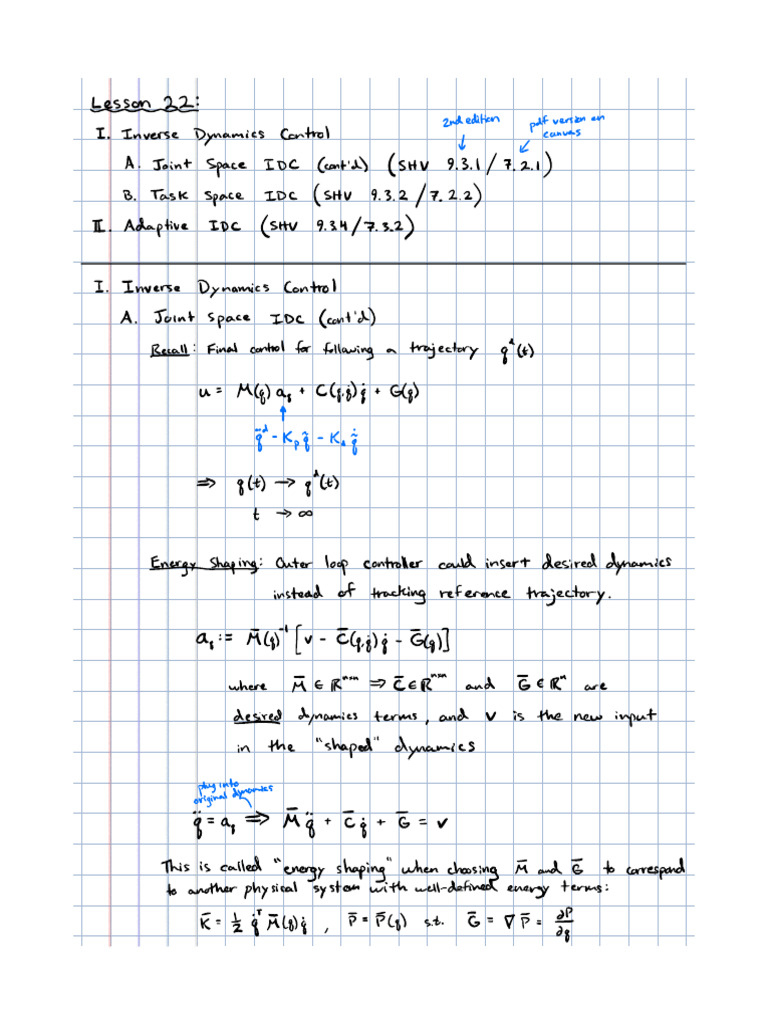 Lesson 22:
2nd edition
pdf version on
canvas
I. Inverse Dynamics Control
A. Joint Space IDC (cont'd) (SHV 9.3.1 / 7.2.1)
B. Task Space IDC (SHV 9.3.2 / 7.2.2)
II. Adaptive IDC (SHV 9.3.4 / 7.3.2)
I. Inverse Dynamics Control
A. Joint Space IDC (cont'd)
Recall: Final control for following a trajectory qᵈ(t)
u = M(q) a_q + C(q,q̇)q̇ + G(q)
↑
q̈ᵈ - K_p q̃ - K_d q̃̇
⇒ q(t) → qᵈ(t)
t → ∞
Energy Shaping: Outer loop controller could insert desired dynamics
instead of tracking reference trajectory.
a_q := M̄(q)⁻¹ [v - C̄(q,q̇)q̇ - Ḡ(q)]
where M̄ ∈ ℝⁿˣⁿ ⇒ C̄ ∈ ℝⁿˣⁿ and Ḡ ∈ ℝⁿ are
desired dynamics terms, and v is the new input
in the "shaped" dynamics
plug into
original dynamics
q̈ = a_q ⇒ M̄ q̈ + C̄ q̇ + Ḡ = v
This is called "energy shaping" when choosing M̄ and Ḡ to correspond
to another physical system with well-defined energy terms:
K̄ = 1/2 q̇ᵀ M̄(q)q̇ , P̄ = P̄(q) s.t. Ḡ = ∇P̄ = ∂P̄/∂q